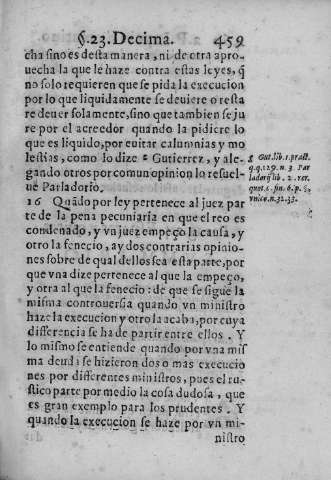 §.23. Decima. 459
cha sino es desta manera, ni de otra apro-
uecha la que le haze contra estas leyes, q̃
no solo requieren que se pida la execucion
por lo que liquidamente se deuiere o resta
re deuer solamente, sino que tambien se ju
re por el acreedor quando la pidiere lo
que es liquido, por euitar calunnias y mo
lestias, como lo dize s Gutierrez, y ale-
gando otros por comun opinion lo resuel-
ue Parladorio.
s Gut. lib. 1. pract.
q. q. 129. n. 3. Par
lador. lib. 2. rer.
quot. c. fin. 6. p. §.
vnico. n. 32. 33.
16 Quãdo por ley pertenece al juez par
te de la pena pecuniaria en que el reo es
condenado, y vn juez empeço la causa, y
otro la fenecio, ay dos contrarias opinio-
nes sobre de qual dellos sea esta parte, por
que vna dize pertenece al que la empeço,
y otra al que la fenecio: de que se sigue la
misma controuersia quando vn ministro
haze la execucion y otro la acaba, por cuya
differencia se ha de partir entre ellos. Y
lo mismo se entiende quando por vna mis
ma deuda se hizieron dos o mas execucio
nes por differentes ministros, pues el ru-
stico parte por medio la cosa dudosa, que
es gran exemplo para los prudentes. Y
quando la execucion se haze por vn mi-
nistro